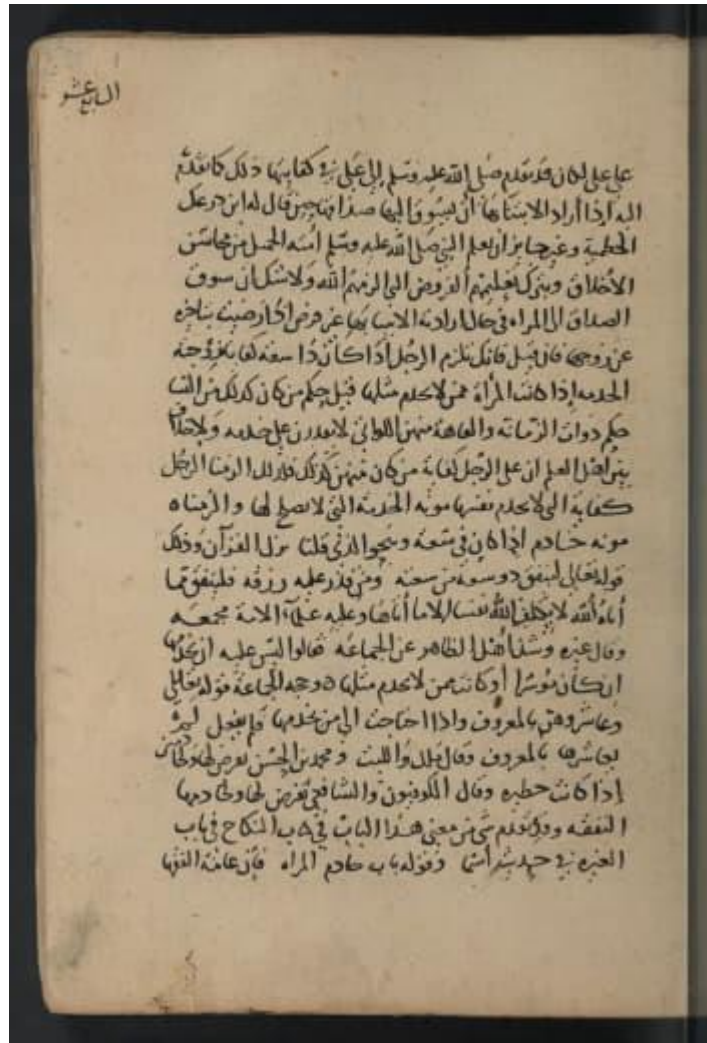 السابع عشر
علي على لكان قد تقدم صلى الله عليه وسلم إلى علي في كفايتها ذلك كما تقدم
اليه إذا أراد الابتناء بها أن يسوق اليها صداقها حين قال له اين درعك
الحطمية وغير جايز ان يعلم النبي صلى الله عليه وسلم امته الجميل من محاسن
الأخلاق ويترك تعليمهم الفروض التي الزمهم الله ولا شك ان سوق
الصداق الى المراه في حال ارادته الابتنا بها غير فرض اذا رضيت بتاخيره
عن زوجها فان قيل فانك تلزم الرجل اذا كان ذا سعة كفاية زوجته
الخدمه إذا كانت المرأة ممن لا يخدم مثلها قيل حكم من كان كذلك من النسا
حكم ذوات الزمانه والعاهة منهن اللواتي لا يقدرن على خدمه ولا خلاف
بين أهل العلم ان على الرجل كفاية من كان منهن كذلك فلذلك الزمنا الرجل
كفاية التي لا تخدم نفسها مونه الخدمة التي لا تصلح لها والزمناه
مونه خادم اذا كان في سعة وبنحو الذي قلنا نزل القرآن وذلك
قوله تعالى لينفق ذو سعة من سعته ومن قدر عليه رزقه فلينفق مما
أتاه الله لا يكلف الله نفسا الا ما أتاها وعليه علماء الامة مجمعه
وقال غيره وشذ أهل الظاهر عن الجماعه فقالوا ليس عليه ان يخدمها
ان كان موسرا أو كانت ممن لا يخدم مثلها وحجه الجماعة قوله تعالى
وعاشروهن بالمعروف واذا احتاجت الى من يخدمها فلم يفعل لم
يعاشرها بالمعروف وقال ملك والليث ومحمد بن الحسن يفرض لها ولخادمين
إذا كانت خطيره وقال الكوفيون والشافعي يفرض لها ولخادمها
النفقه وقد تقدم شي من معنى هذا الباب في كتاب النكاح في باب
الغيره في حديث أسما وقوله باب خادم المراه فإن عامة الفقها